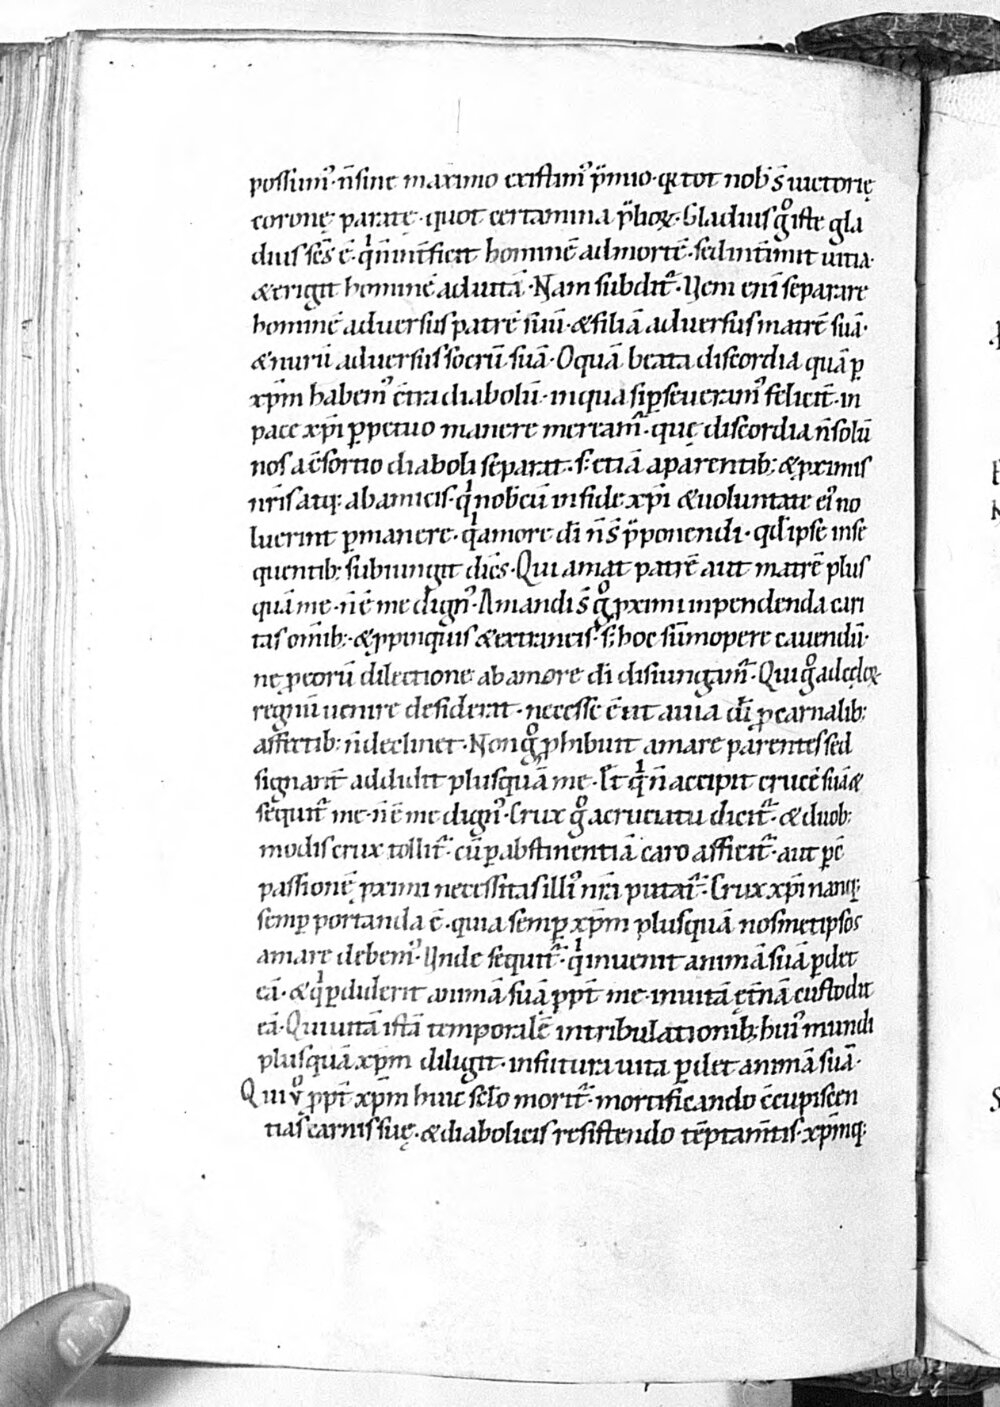 possim᷒. n̄ sine maximo existim᷒ p̄mio. qr̄ tot nob̄ s̄ uictorię
coronę paratę. quot certamina p̄lioꝝ. Gladius gͦ iste gla
dius sēs ē. qⁱ n̄ int̄ficit hominē ad mortē. sed int̄imit uitia.
& erigit hominē ad uitā. Nam subdit᷑. Veni enī separare
hominē aduersus patrē suū. & filiā aduersus matrē suā.
& nurū aduersus socrū suā. O quā beata discordia quā ꝑ
xp̄m habem᷒ c̄tra diabolū. in qua si ꝑseueram᷒ felicit̄. in
pace xp̄i ꝑpetuo manere meream᷑. quę discordia n̄ solū
nos a c̄sortio diaboli separat. s; etiā a parentib; & ꝓximis
nr̄is atq; ab amicis. qⁱ nob̄cū in fide xp̄i & uoluntate ei᷒ no
luerint ꝑmanere. qⁱ amore dī n̄ s̄ p̄ponendi. qđ ipse inse
quentib; subiungit dicēs. Qui amat patrē aut matrē plus
quā me. n̄ ē me dign᷒. Amandi s̄ gͦ ꝓximi inpendenda cari
tas om̄ib;. & ꝓpinquis & extraneis. s; hoc sūmopere cauendū.
ne ꝓ eorū dilectione ab amore dī disiungam᷑. Qui gͦ ad cęloꝝ
regnū uenire desiderat. necesse ē ut a uia dī ꝓ carnalib;
affectib; n̄ declinet. Non gͦ ꝓhibuit amare parentes sed
signant̄ addidit plusquā me. Et qⁱ n̄ accipit crucē suā &
sequit᷑ me. n̄ ē me dign᷒. Crux gͦ a cruciatu dicit᷑. & duob;
modis crux tollit᷑. cū ꝑ abstinentiā caro afficit᷑. aut ꝑ c̄
passionē ꝓximi necessitas illi᷒ nr̄a putat᷑. Crux xp̄i nanq;
semꝑ portanda ē. quia semꝑ xp̄m plusquā nosmetipsos
amare debem᷒. Vnde sequit᷑. qⁱ inuenit animā suā ꝑdet
eā. & qⁱ ꝑdiderit animā suā ꝓpt̄ me. in uitā ęt̄nā custodit
eā. Qui uitā istā temporalē in tribulationib; hui᷒ mundi
plusquā xp̄m diligit. in futura uita ꝑdet animā suā.
Qui uͦ ꝓpt̄ xp̄m huic sclo morit᷑. mortificando c̄cupiscen
tias carnis suę. & diabolicis resistendo tēptam̄tis. xp̄mq;